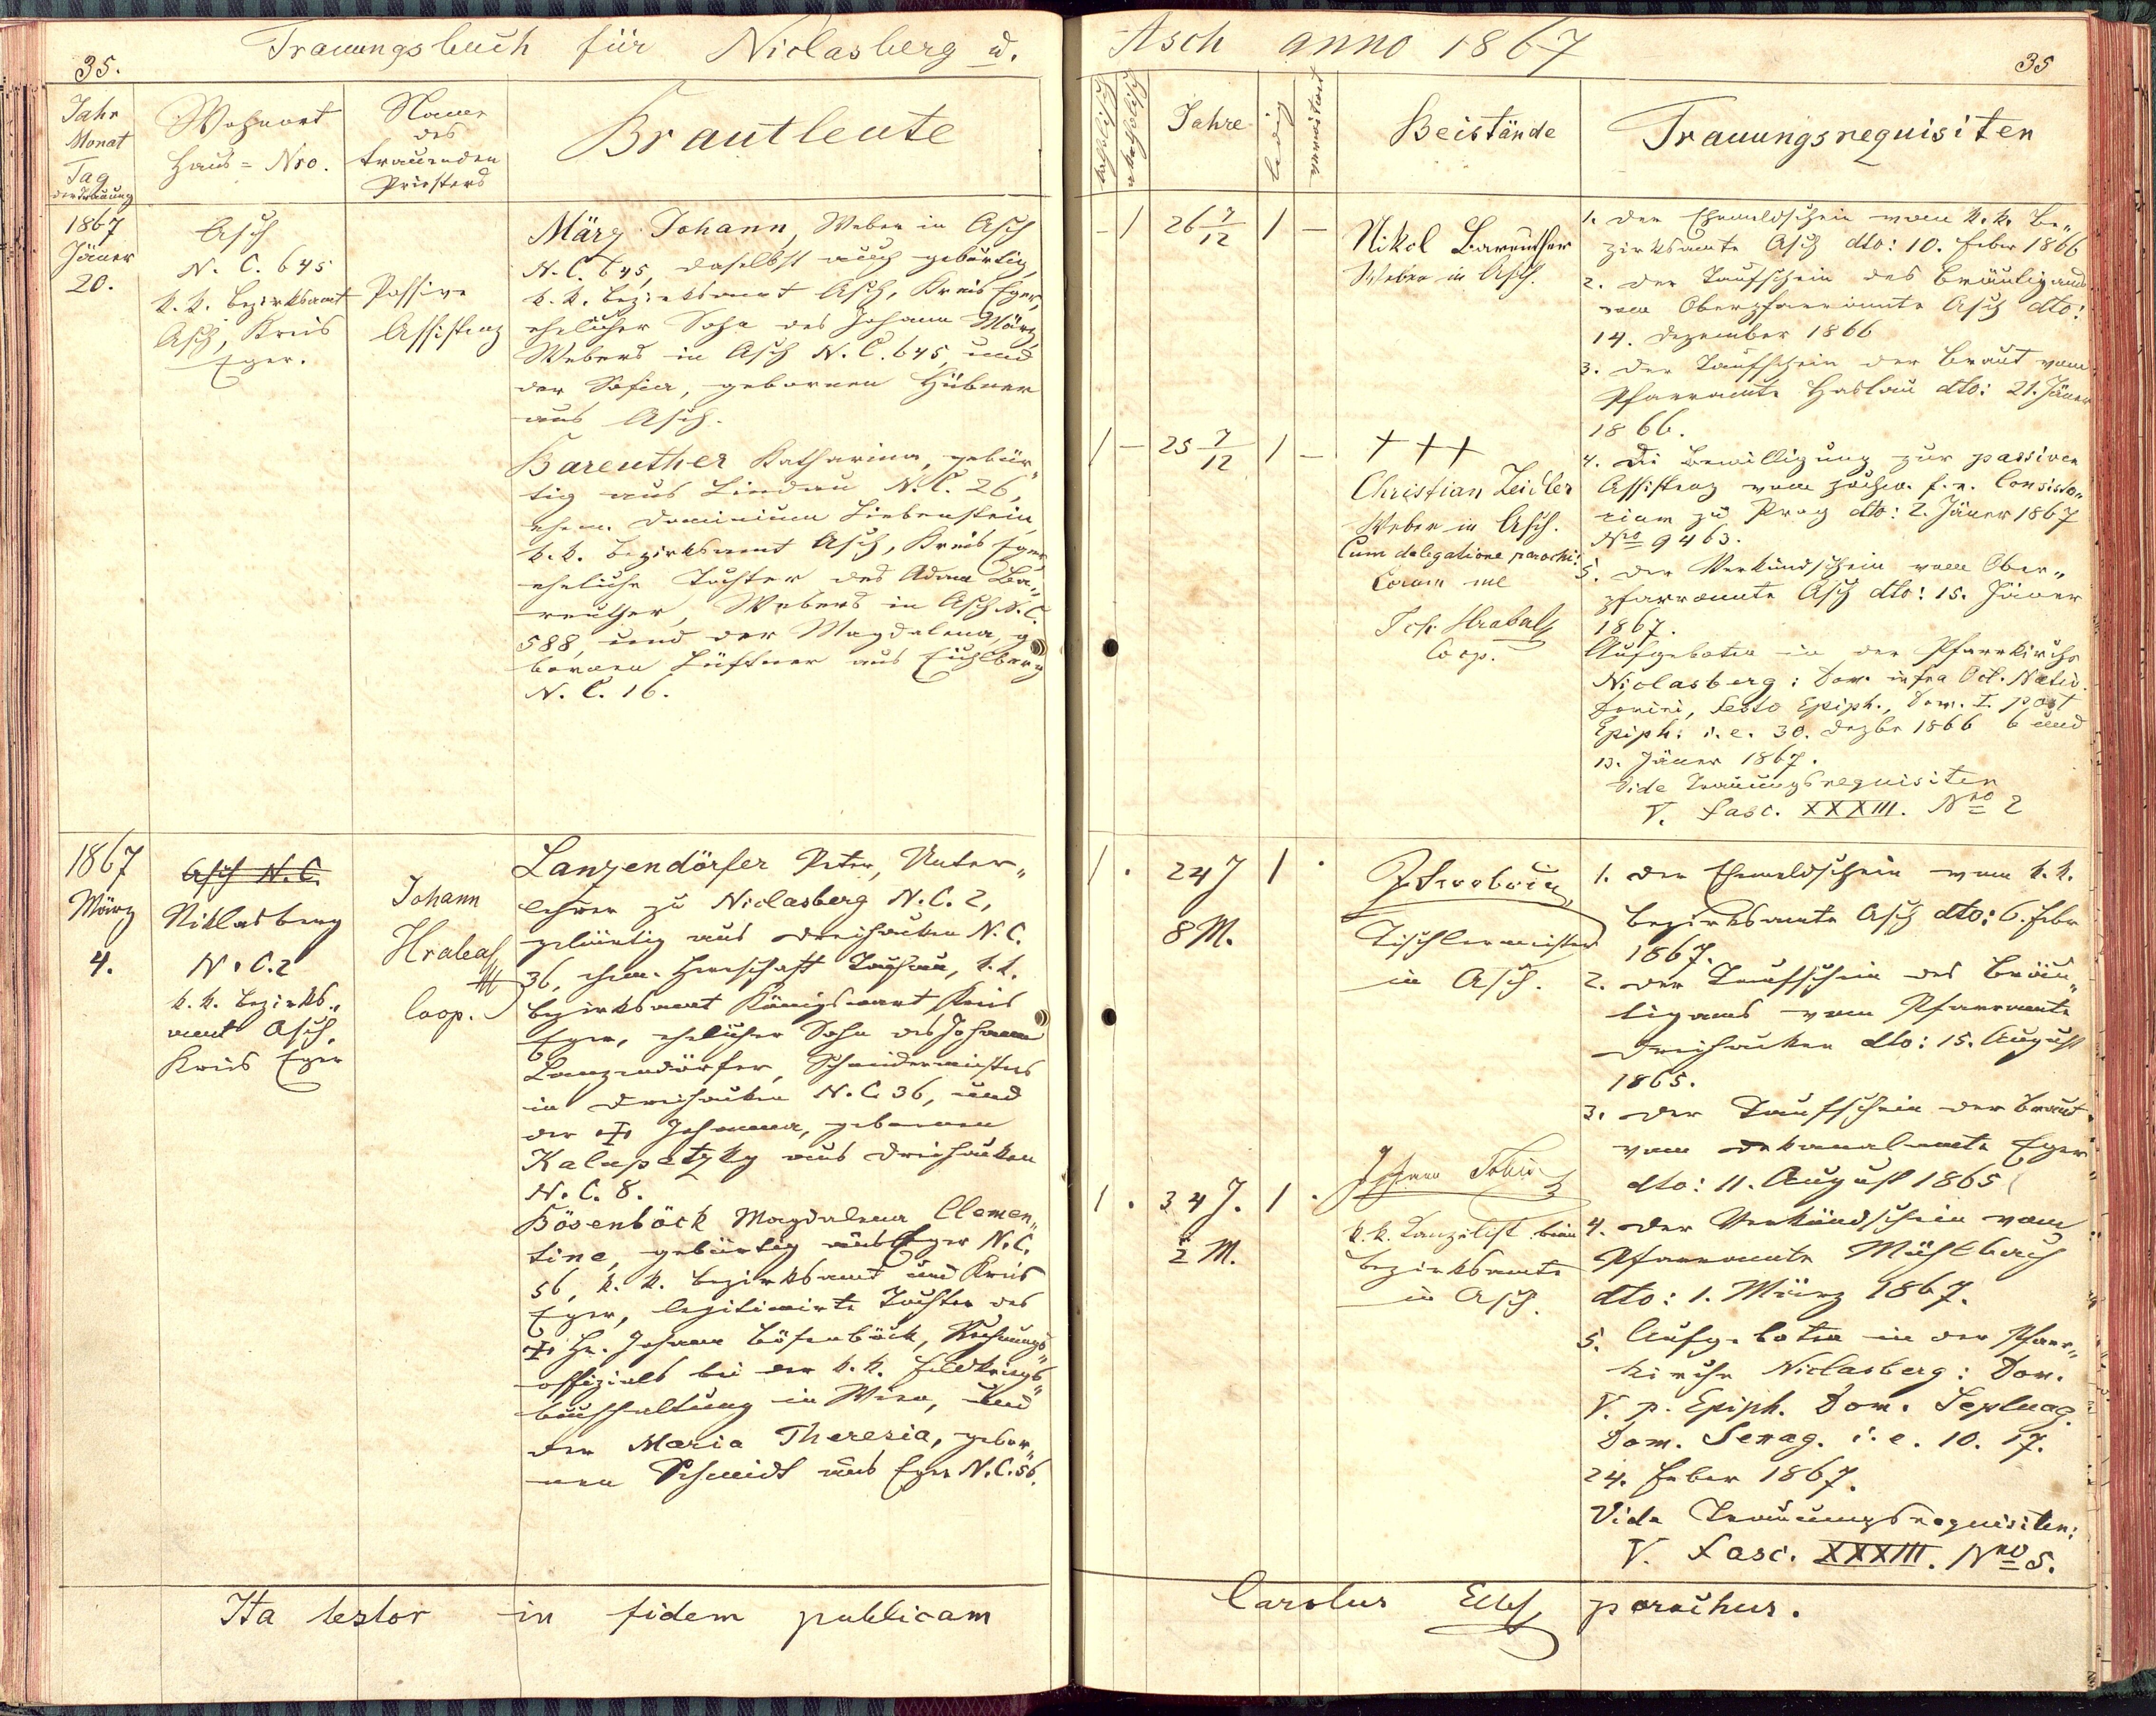 35.
Trauungsbuch für Niclasberg u.
Jahr
Monat
Tag
der Trauung
Wohnort
Haus=Nro.
Name
des
trauenden
Priesters
Brautleute
1867
Jäner
20.
Asch
N. C. 645
k. k. Bezirksamt
Asch, Kreis
Eger.
Passive
Assistenz
März Johann, Weber in Asch
N. C. 645, daselbst auch gebürtig,
k. k. Bezirksamt Asch, Kreis Eger,
ehelicher Sohn des Johann März,
Webers in Asch N. C. 645, und
der Sofia, gebornen Hübner
aus Asch.
Bareuther Katharina, gebür„
tig aus Lindau N. C. 26,
ehem. Dominium Liebenstein,
k. k. Bezirksamt Asch, Kreis Eger
eheliche Tochter des Adam Ba„
reuther, Webers in Asch N. C.
588, und der Magdalena, ge
bornen Lüftner aus Eichelberg
N. C. 16.
1867
März
4.
Asch N. C.
Niklasberg
N. C. 2
k. k. Bezirks„
amt Asch,
Kreis Eger
Johann
Hrabal
Coop.
Lanzendörfer Peter, Unter„
lehrer zu Niclasberg N. C. 2,
gebürtig aus Dreihacken N. C.
36, ehem. Herrschaft Tachau, k. k.
Bezirksamt Königswart Kreis
Eger, ehelicher Sohn des Johann
Lanzendörfer, Schneidermeisters
in Dreihacken N. C. 36, und
der † Johanna, gebornen
Kalupetzky aus Dreihacken
N. C. 8.
Bösenböck Magdalena Clemen„
tine, gebürtig aus Eger N. C.
56, k. k. Bezirksamt und Kreis
Eger, legitimirte Tochter des
† Hr. Johann Bösenböck, Rechnungs„
offizials bei der k. k. Hofkriegs„
buchhaltung in Wien, und
der Maria Theresia, gebor„
nen Schmidt aus Eger N. C. 56.
Ita testor in fidem publicam
Asch anno 1867
35
katholisch
akatholisch
Jahre
ledig
verwitwet
Beistände
Trauungsrequisiten
– 1 26 7/12 1 –
Nikol Bareuther
Weber in Asch.
1 – 25 7/12 1 –
+++
Christian Zeidler
Weber in Asch.
Cum delegatione parochi:
Coram me
Joh. Hrabal
Coop.
1. Der Ehemeldschein vom k. k. Be„
zirksamte Asch dto: 10. Feber 1866
2. Der Taufschein des Bräutigams
vom Oberpfarramte Asch dto:
14. Dezember 1866
3. Der Taufschein der Braut vom
Pfarramte Haslau dto: 21. Jäner
1866.
4. Die Bewilligung zur passiven
Assistenz vom hochw. f. e. Consisto„
rium zu Prag dto: 2. Jäner 1867
Nro 9463.
5. Der Verkündschein vom Ober„
pfarramte Asch dto: 15. Jäner
1867.
Aufgeboten in der Pfarrkirche
Niclasberg: Dom. infra Oct. Nativ.
Domini, Festo Epiph., Dom. I. post
Epiph: i. e. 30. Dezbr 1866 6 und
13. Jäner 1867.
Vide Trauungsrequisiten
V. Fasc. XXXIII. Nro 2
1 . 24 J 1 .
8 M.
Tischlermeister
in Asch.
1 . 34 J. 1 .
2 M.
Johann Tobis
k. k. Kanzelist beim
Bezirksamte
in Asch.
1. Der Ehemeldschein vom k. k.
Bezirksamte Asch dto: 6. Febr
1867.
2. Der Taufschein des Bräu„
tigams vom Pfarramte
Dreihacken dto: 15. August
1865.
3. Der Taufschein der Braut
vom Dekanalamte Eger
dto: 11. August 1865
4. Der Verkündschein vom
Pfarramte Mühlbach
dto: 1. März 1867.
5. Aufgeboten in der Pfarr„
kirche Niclasberg: Dom.
V. p. Epiph. Dom. Septuag.
Dom. Sexag. i. e. 10. 17.
24. Feber 1867.
Vide Trauungsrequisiten:
V. Fasc. XXXIII. Nro 5.
Carolus parochus.